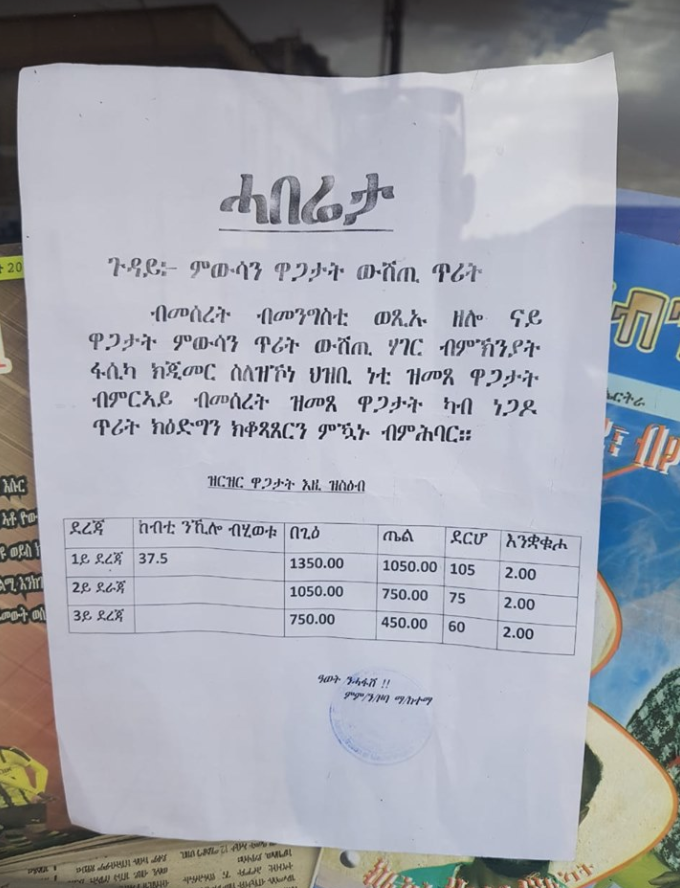 ሓበሬታ
ጉዳይ፦ ምውሳን ዋጋታት ውሽጢ ጥሪት
ብመሰረት ብመንግስቲ ወጺኡ ዘሎ ናይ
ዋጋታት ምውሳን ጥሪት ውሽጢ ሃገር ብምኽንያት
ፋሲካ ክጂመር ስለዝኾነ ህዝቢ ነቲ ዝመጸ ዋጋታት
ብምርኣይ ብመሰረት ዝመጸ ዋጋታት ካብ ነጋዶ
ጥሪት ክዕድግን ክቆጻጸርን ምዃኑ ብምሕባር።
ዝርዝር ዋጋታት እዚ ዝስዕብ
ደረጃ ከብቲ ንኺሎ ብሂወቱ በጊዕ ጤል ደርሆ እንቋቁሖ
1ይ ደረጃ 37.5 1350.00 1050.00 105 2.00
2ይ ደራጃ 1050.00 750.00 75 2.00
3ይ ደረጃ 750.00 450.00 60 2.00
ዓወት ንሓፋሽ !!
ምም/ን/ዞባ ማ/ከተማ